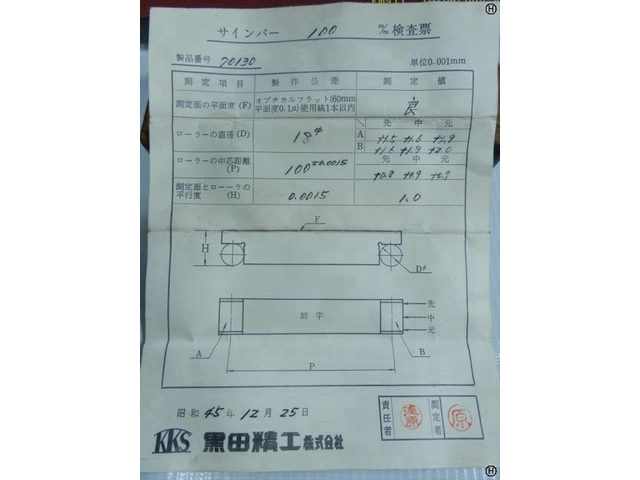 サインバー 100 m/m 検査票
製品番号 70130 単位0.001mm
測定項目 製作公差 測定値
測定面の平面度(F) オプチカルフラット(60mm 平面度0.1μ)使用縞1本以内 良
ローラーの直径(D) 18φ
先 中 元
A +1.5 +1.6 +1.9
B +1.6 +1.9 +2.0
ローラーの中芯距離(P) 100±0.0015
先 中 元
+0.8 +0.9 +0.9
測定面とローラーの平行度(H) 0.0015 1.0
F
H
Dφ
刻字
先
中
元
A
P
B
昭和 45年 12月 25日
責任者 測定者 原
KKS 黒田精工株式会社
H
H